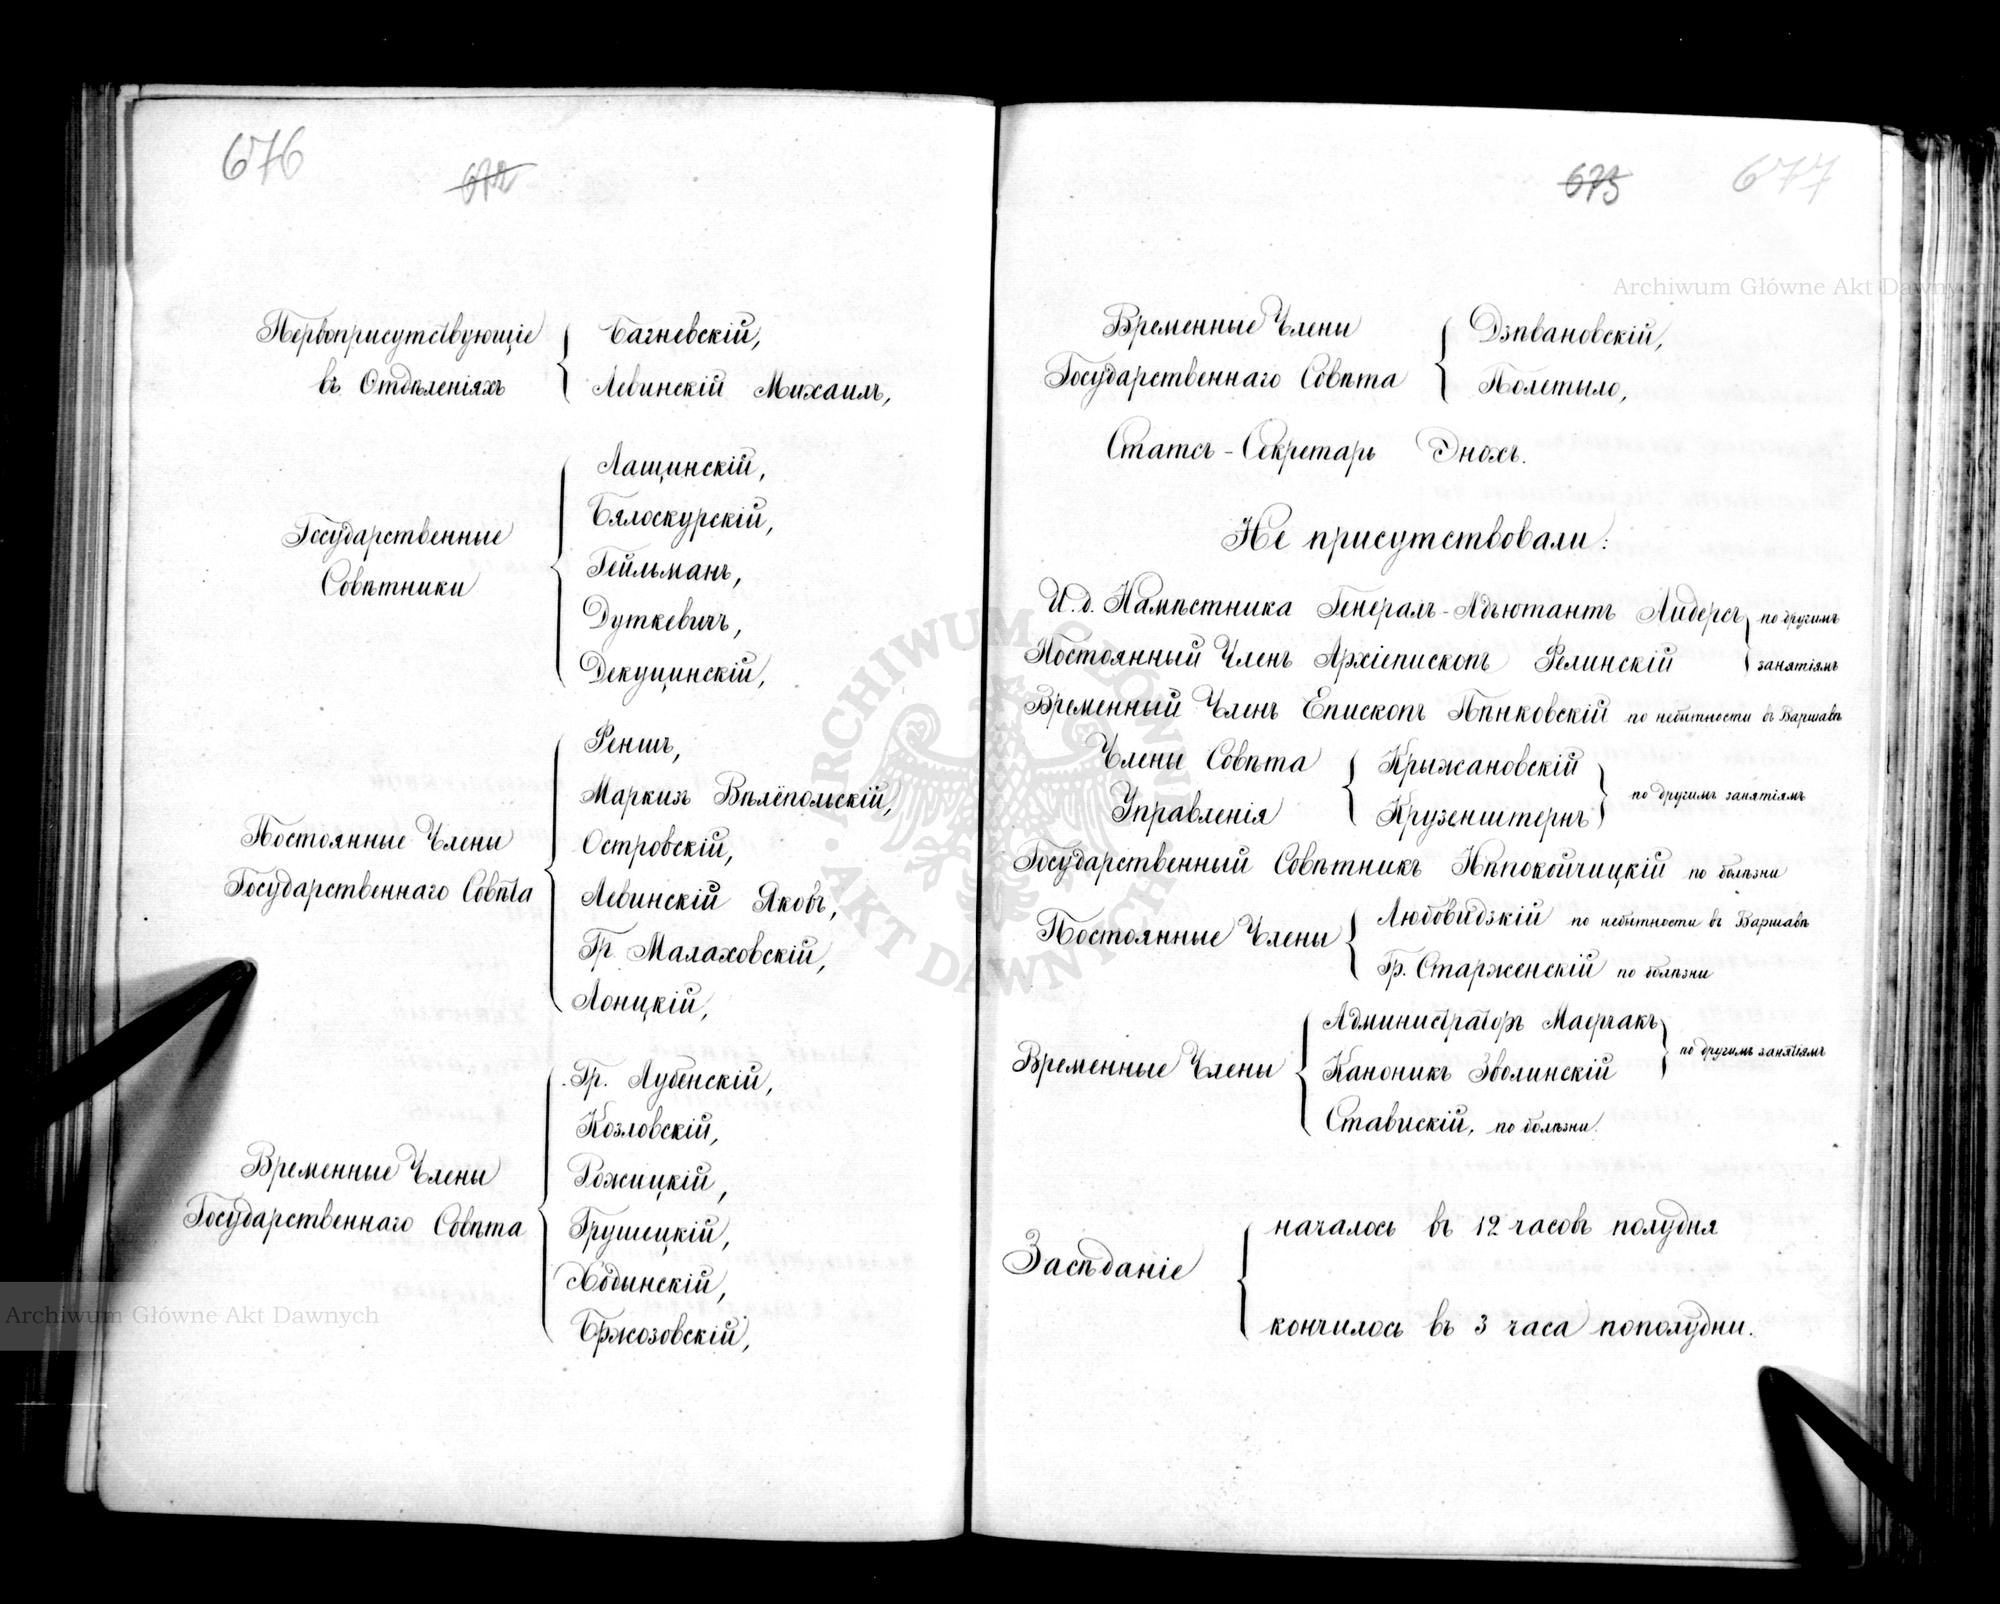 676
672
Первоприсутствующіе
въ Отдѣленіяхъ
Багневскій,
Левинскій Михаилъ,
Государственные
Совѣтники
Лащинскій,
Бялоскурскій,
Гейльманъ,
Дуткевичъ,
Декуцинскій,
Постоянные Члены
Государственнаго Совѣта
Феншъ,
Маркизъ Вѣлёпольскій,
Островскій,
Левинскій Яковъ,
Гр. Малаховскій,
Лонцкій,
Временные Члены
Государственнаго Совѣта
Гр. Лубенскій,
Козловскій,
Рожицкій,
Грушецкій,
Ходынскій,
Бржозовскій,
673
677
Временные Члены
Государственнаго Совѣта
Дзѣвановскій,
Полетыло,
Статсъ-Секретарь Энохъ.
Не присутствовали:
И. д. Намѣстника Генералъ-Адъютантъ Лидерсъ по другимъ
Постоянный Членъ Архіепископъ Фелинскій занятіямъ
Временный Членъ Епископъ Пѣнковскій по небытности въ Варшавѣ
Члены Совѣта
Управленія
Крыжановскій
Крузенштернъ
по другимъ занятіямъ
Государственный Совѣтникъ Нѣпокойчицкій по болѣзни
Постоянные Члены
Любовидзкій по небытности въ Варшавѣ
Гр. Старженскій по болѣзни
Временные Члены
Администраторъ
Каноникъ Зволинскій
по другимъ занятіямъ
Ставискій, по болѣзни.
Засѣданіе
началось въ 12 часовъ полудня
кончилось въ 3 часа пополудни.
Archiwum Główne Akt Dawnych
Archiwum Główne Akt Dawnych
ARCHIWUM GŁÓWNE AKT DAWNYCH